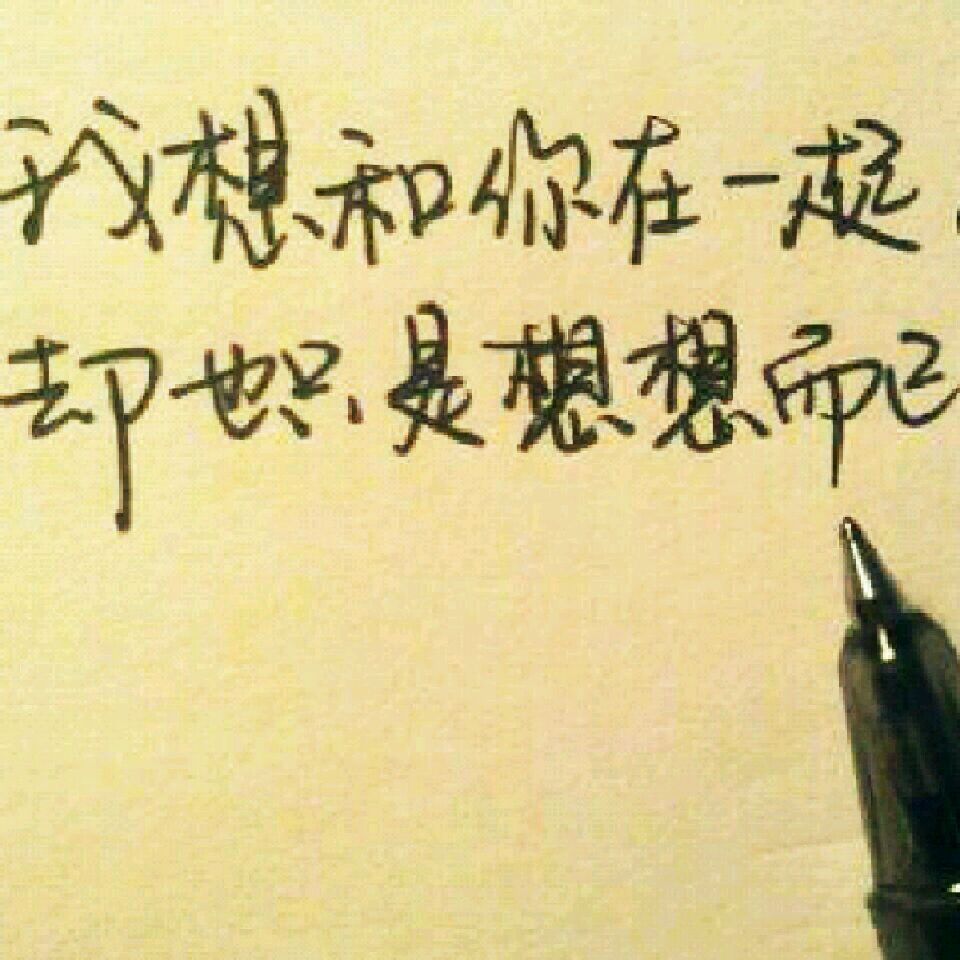 我想和你在一起,
却也只是想想而已